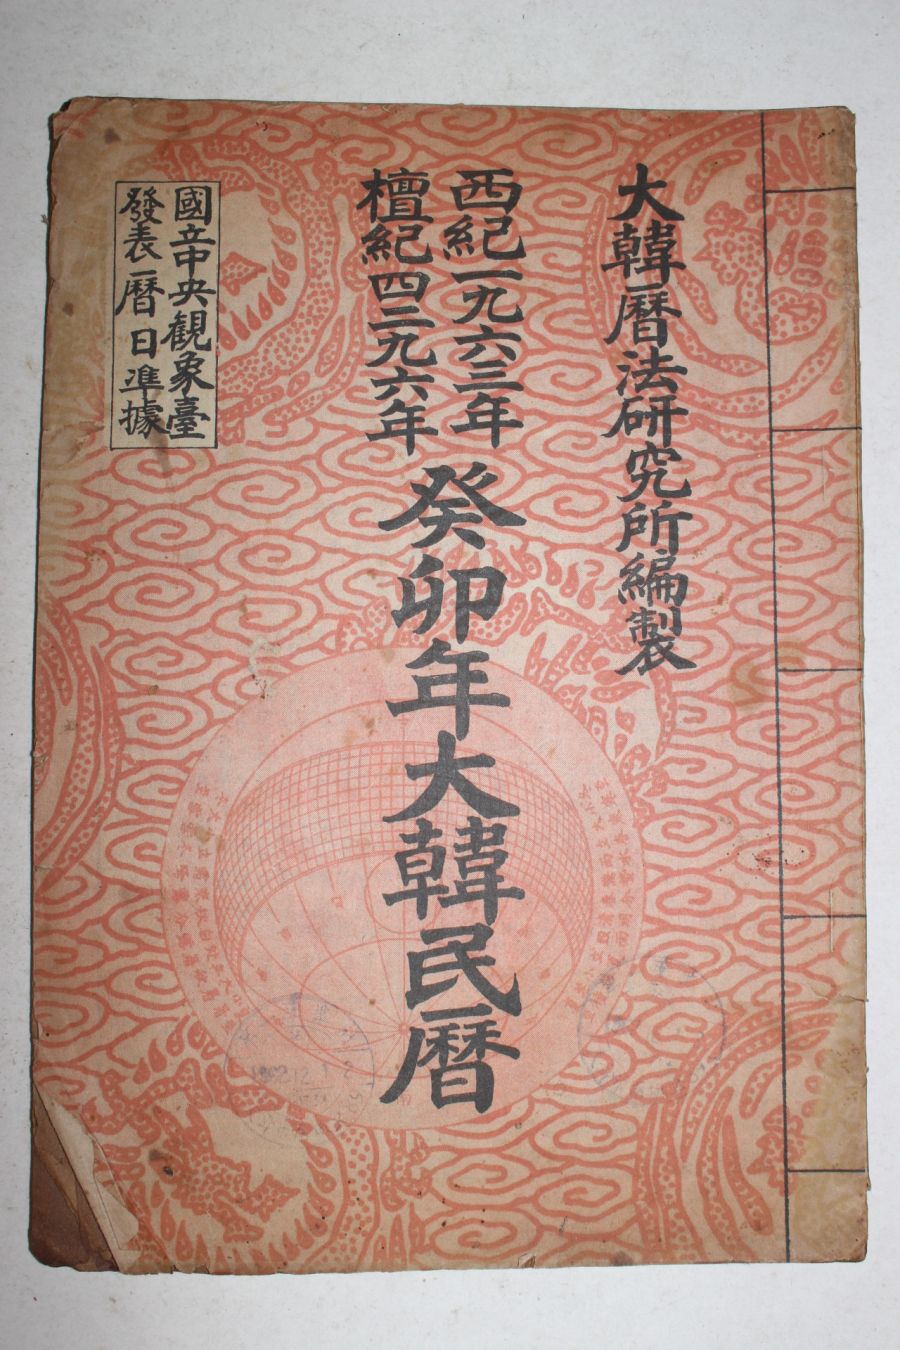 大韓曆法硏究所編製
西紀一九六三年
檀紀四二九六年
癸卯年大韓民曆
國立中央觀象臺
發表曆日準據